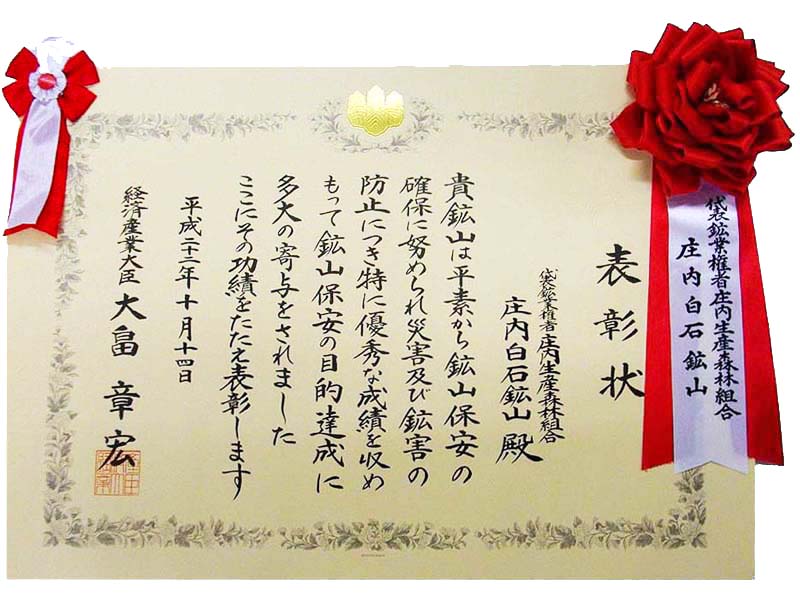 代表鉱業権者庄内生産森林組合
庄内白石鉱山
表彰状
代表鉱業権者庄内生産森林組合
庄内白石鉱山殿
貴鉱山は平素から鉱山保安の
確保に努められ災害及び鉱害の
防止につき特に優秀な成績を収め
もって鉱山保安の目的達成に
多大の寄与をされました
ここにその功績をたたえ表彰します
平成二十二年十月十四日
経済産業大臣大畠章宏